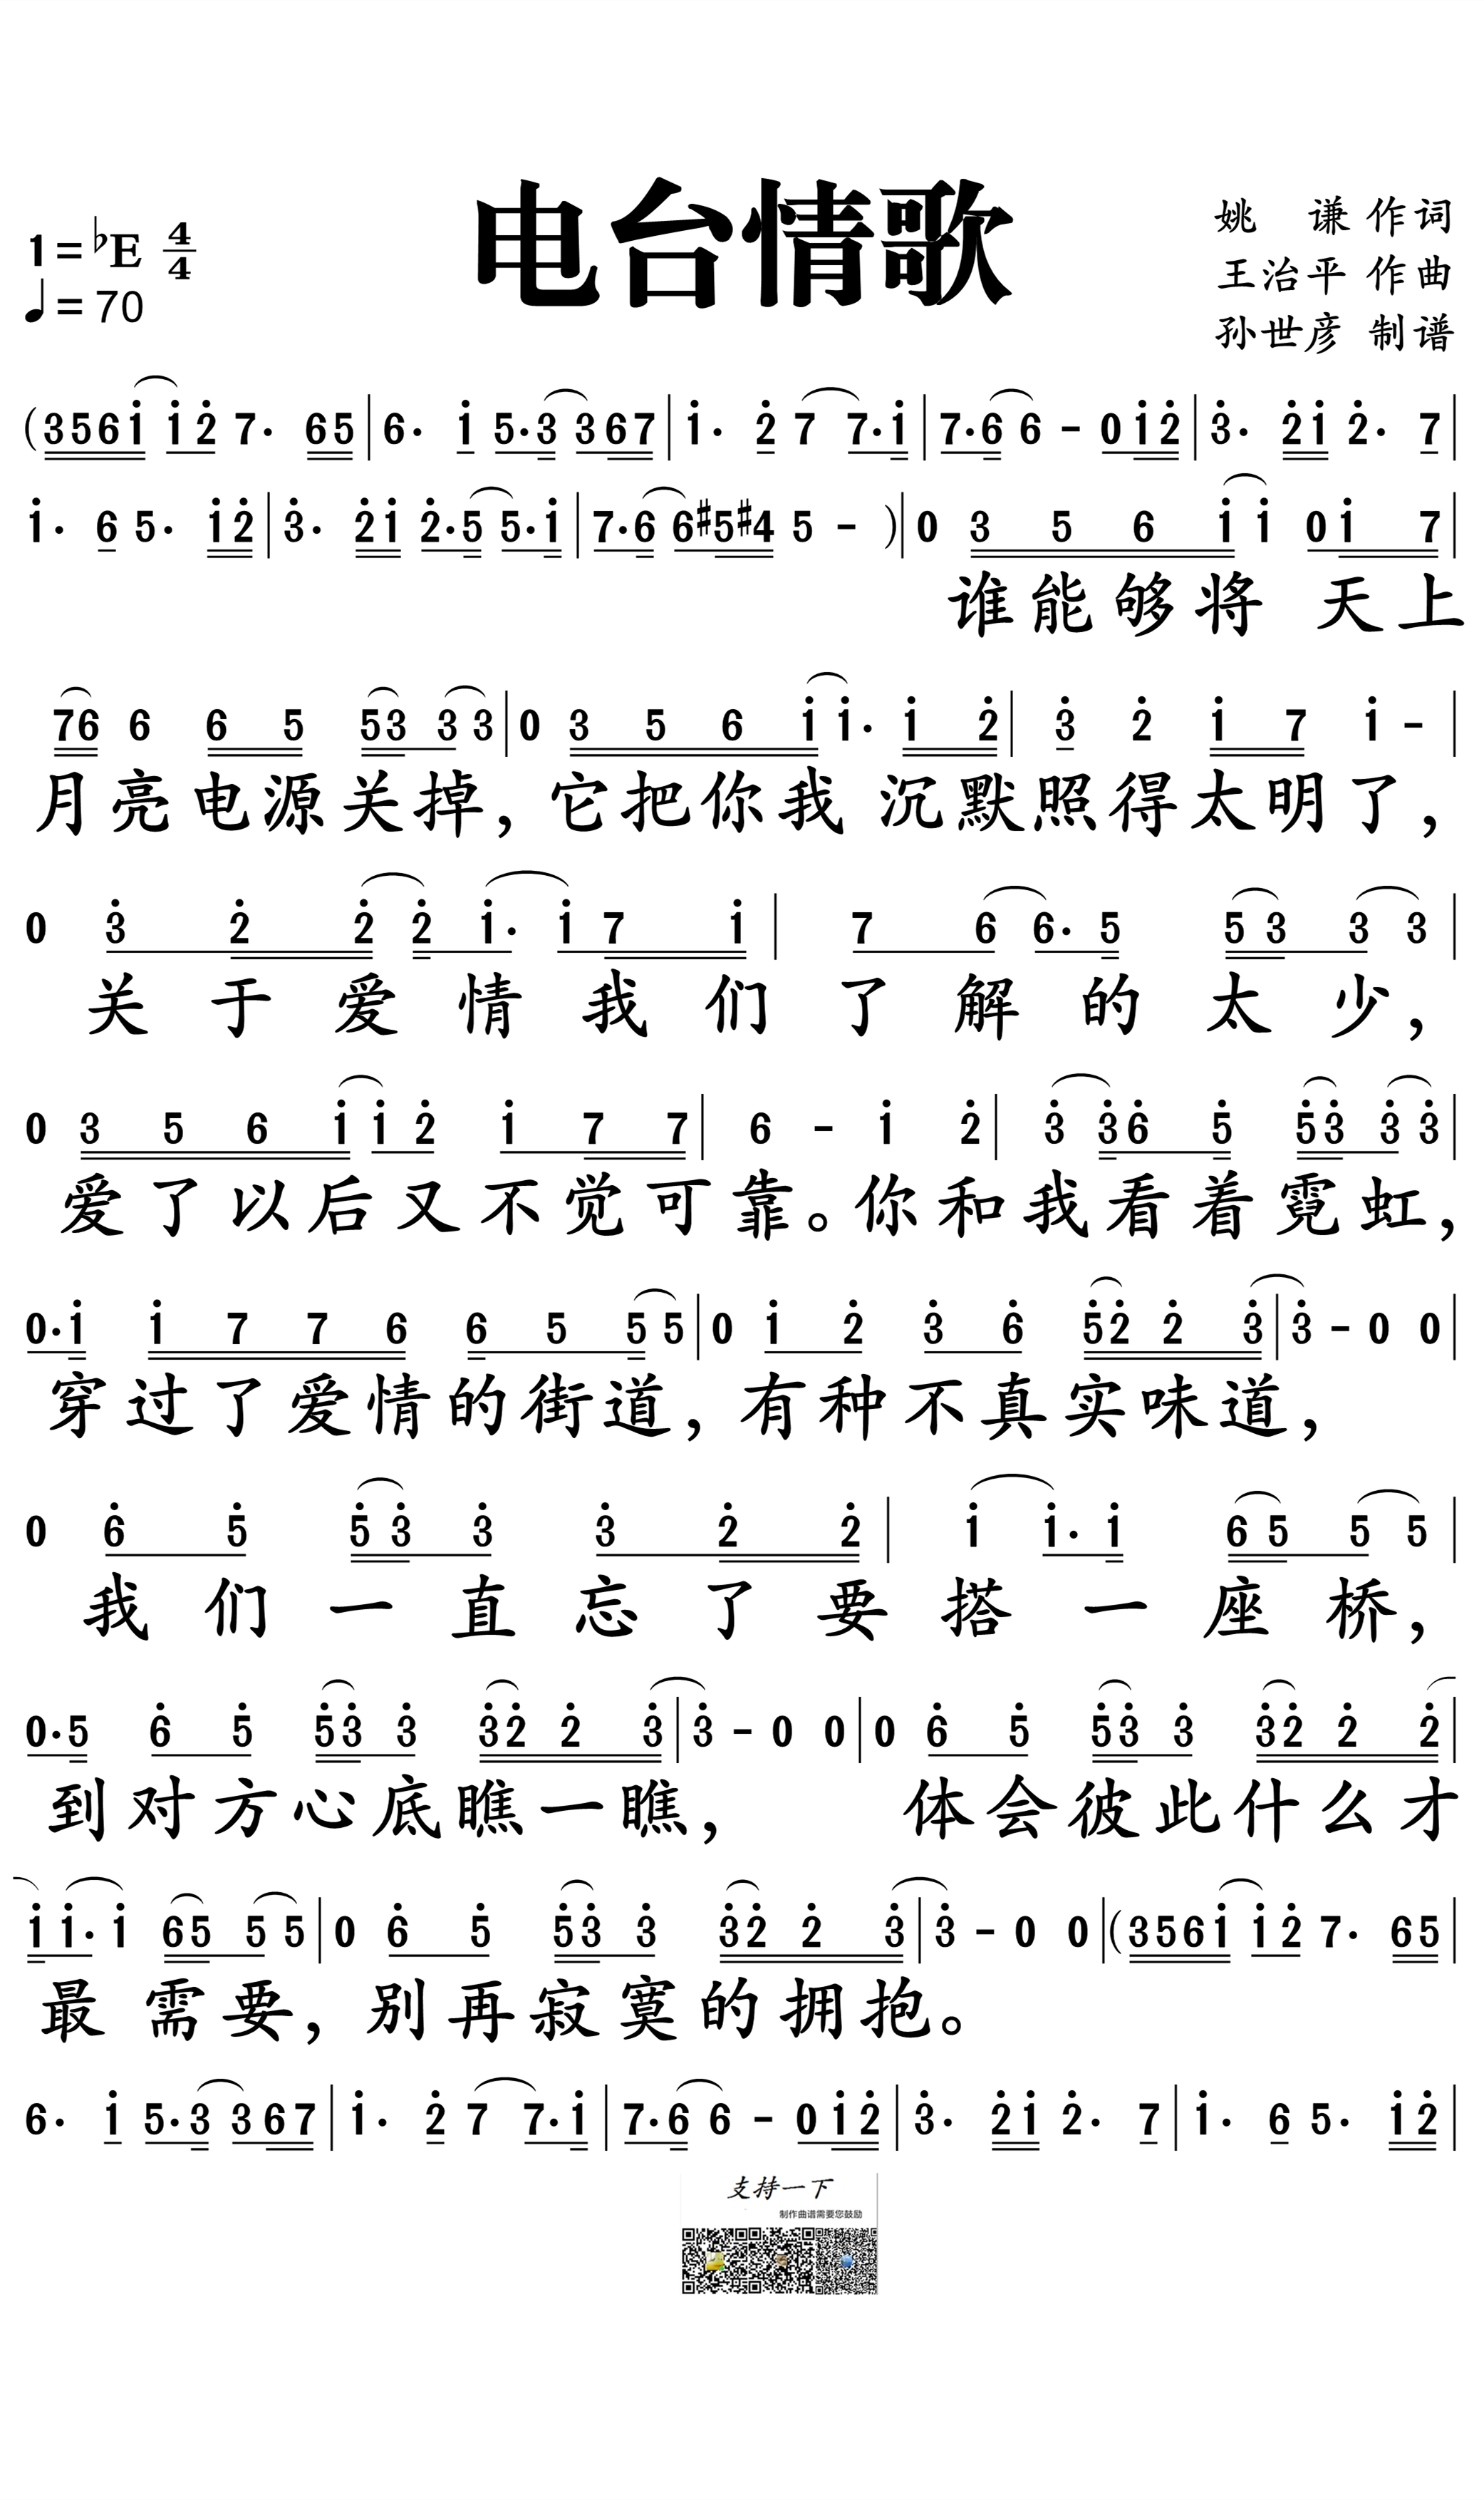 电台情歌
1=♭E 4/4
♩=70
姚 谦 作词
王治平 作曲
孙世彦 制谱
(3 5 6 i̇ i̇ 2̇ 7· 6 5 | 6· i̇ 5·3̇ 3 6 7 | i̇· 2̇ 7 7·i̇ | 7·6 6 - 0 i̇ 2̇ | 3̇· 2̇ i̇ 2̇· 7 |
i̇· 6 5· i̇ 2̇ | 3̇· 2̇ i̇ 2̇·5 5·i̇ | 7·6 6 #5 #4 5 - ) | 0 3 5 6 i̇ i̇ 0 i̇ 7 |
谁能够将 天上
7 6 6 6 5 5 3 3 3 | 0 3 5 6 i̇ i̇· i̇ 2̇ | 3̇ 2̇ i̇ 7 i̇ - |
月亮电源关掉,它把你我 沉默照得太明了,
0 3̇ 2̇ 2̇ 2̇ i̇· i̇ 7 i̇ | 7 6 6· 5 5 3 3 3 |
关于爱情我们了解的太少,
0 3 5 6 i̇ i̇ 2̇ i̇ 7 7 | 6 - i̇ 2̇ | 3̇ 3̇ 6̇ 5̇ 5̇ 3̇ 3̇ 3̇ |
爱了以后又不觉可靠。你和我看着霓虹,
0·i̇ i̇ 7 7 6 6 5 5 5 | 0 i̇ 2̇ 3̇ 6̇ 5̇ 2̇ 2̇ 3̇ | 3̇ - 0 0 |
穿过了爱情的街道,有种不真实味道,
0 6̇ 5̇ 5̇ 3̇ 3̇ 3̇ 2̇ 2̇ | i̇ i̇· i̇ 6 5 5 5 |
我们一直忘了要搭一座桥,
0·5 6̇ 5̇ 5̇ 3̇ 3̇ 3̇ 2̇ 2̇ 3̇ | 3̇ - 0 0 | 0 6̇ 5̇ 5̇ 3̇ 3̇ 3̇ 2̇ 2̇ 2̇ |
到对方心底瞧一瞧, 体会彼此什么才
i̇ i̇· i̇ 6 5 5 5 | 0 6̇ 5̇ 5̇ 3̇ 3̇ 3̇ 2̇ 2̇ 3̇ | 3̇ - 0 0 | (3 5 6 i̇ i̇ 2̇ 7· 6 5 |
最需要,别再寂寞的拥抱。
6· i̇ 5·3̇ 3 6 7 | i̇· 2̇ 7 7·i̇ | 7·6 6 - 0 i̇ 2̇ | 3̇· 2̇ i̇ 2̇· 7 | i̇· 6 5· i̇ 2̇ |
支持一下
制作曲谱需要您鼓励